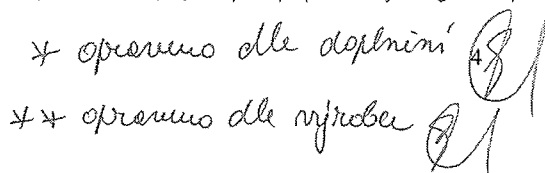 * opraveno dle doplnění 4
** opraveno dle výrobce